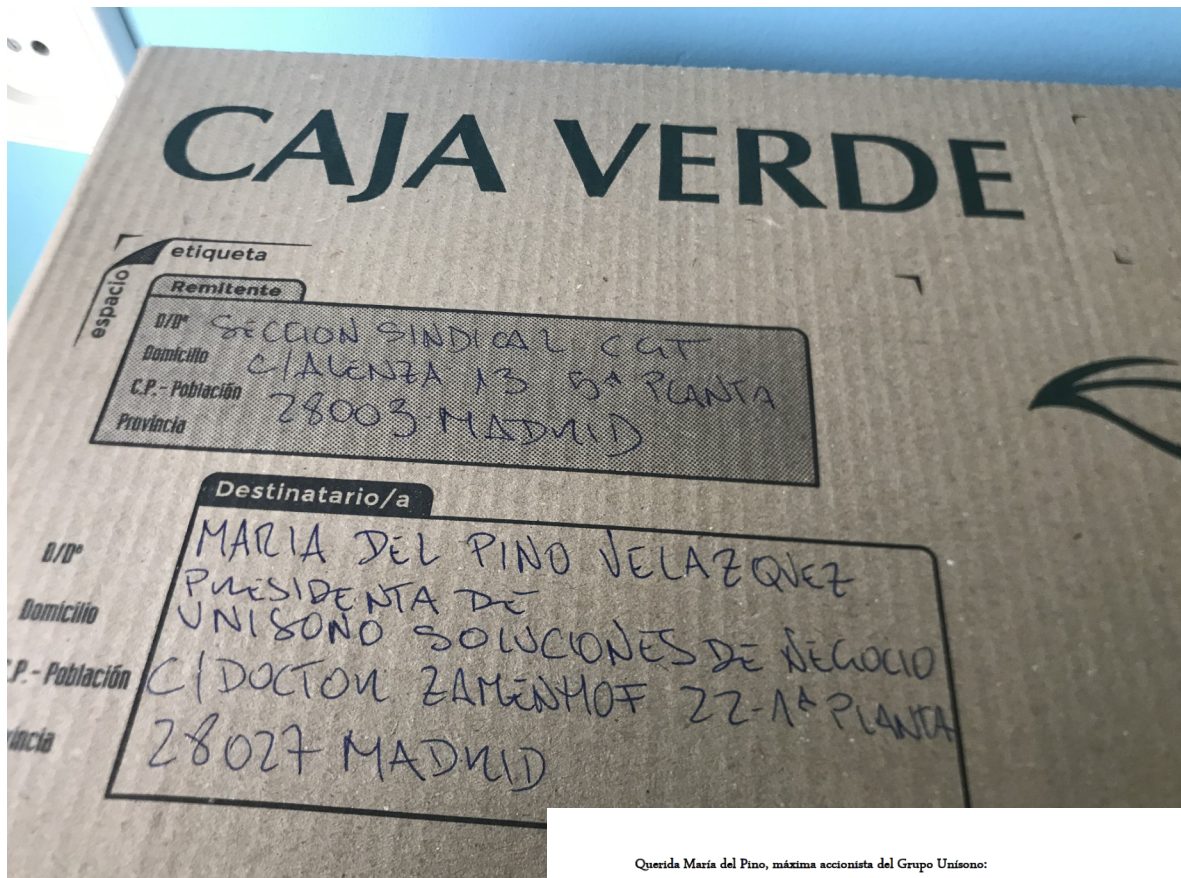 CAJA VERDE
etiqueta
espacio
Remitente
D/Dª SECCION SINDICAL CGT
Domicilio C/ALENZA 13 5ª PLANTA
C.P. - Población 28003 MADRID
Provincia
Destinatario/a
D/Dª MARIA DEL PINO VELAZQUEZ
PRESIDENTA DE
Domicilio UNISONO SOLUCIONES DE NEGOCIO
.P. - Población C/DOCTOR ZAMENHOF 22-1ª PLANTA
vincia 28027 MADRID
Querida María del Pino, máxima accionista del Grupo Unísono: